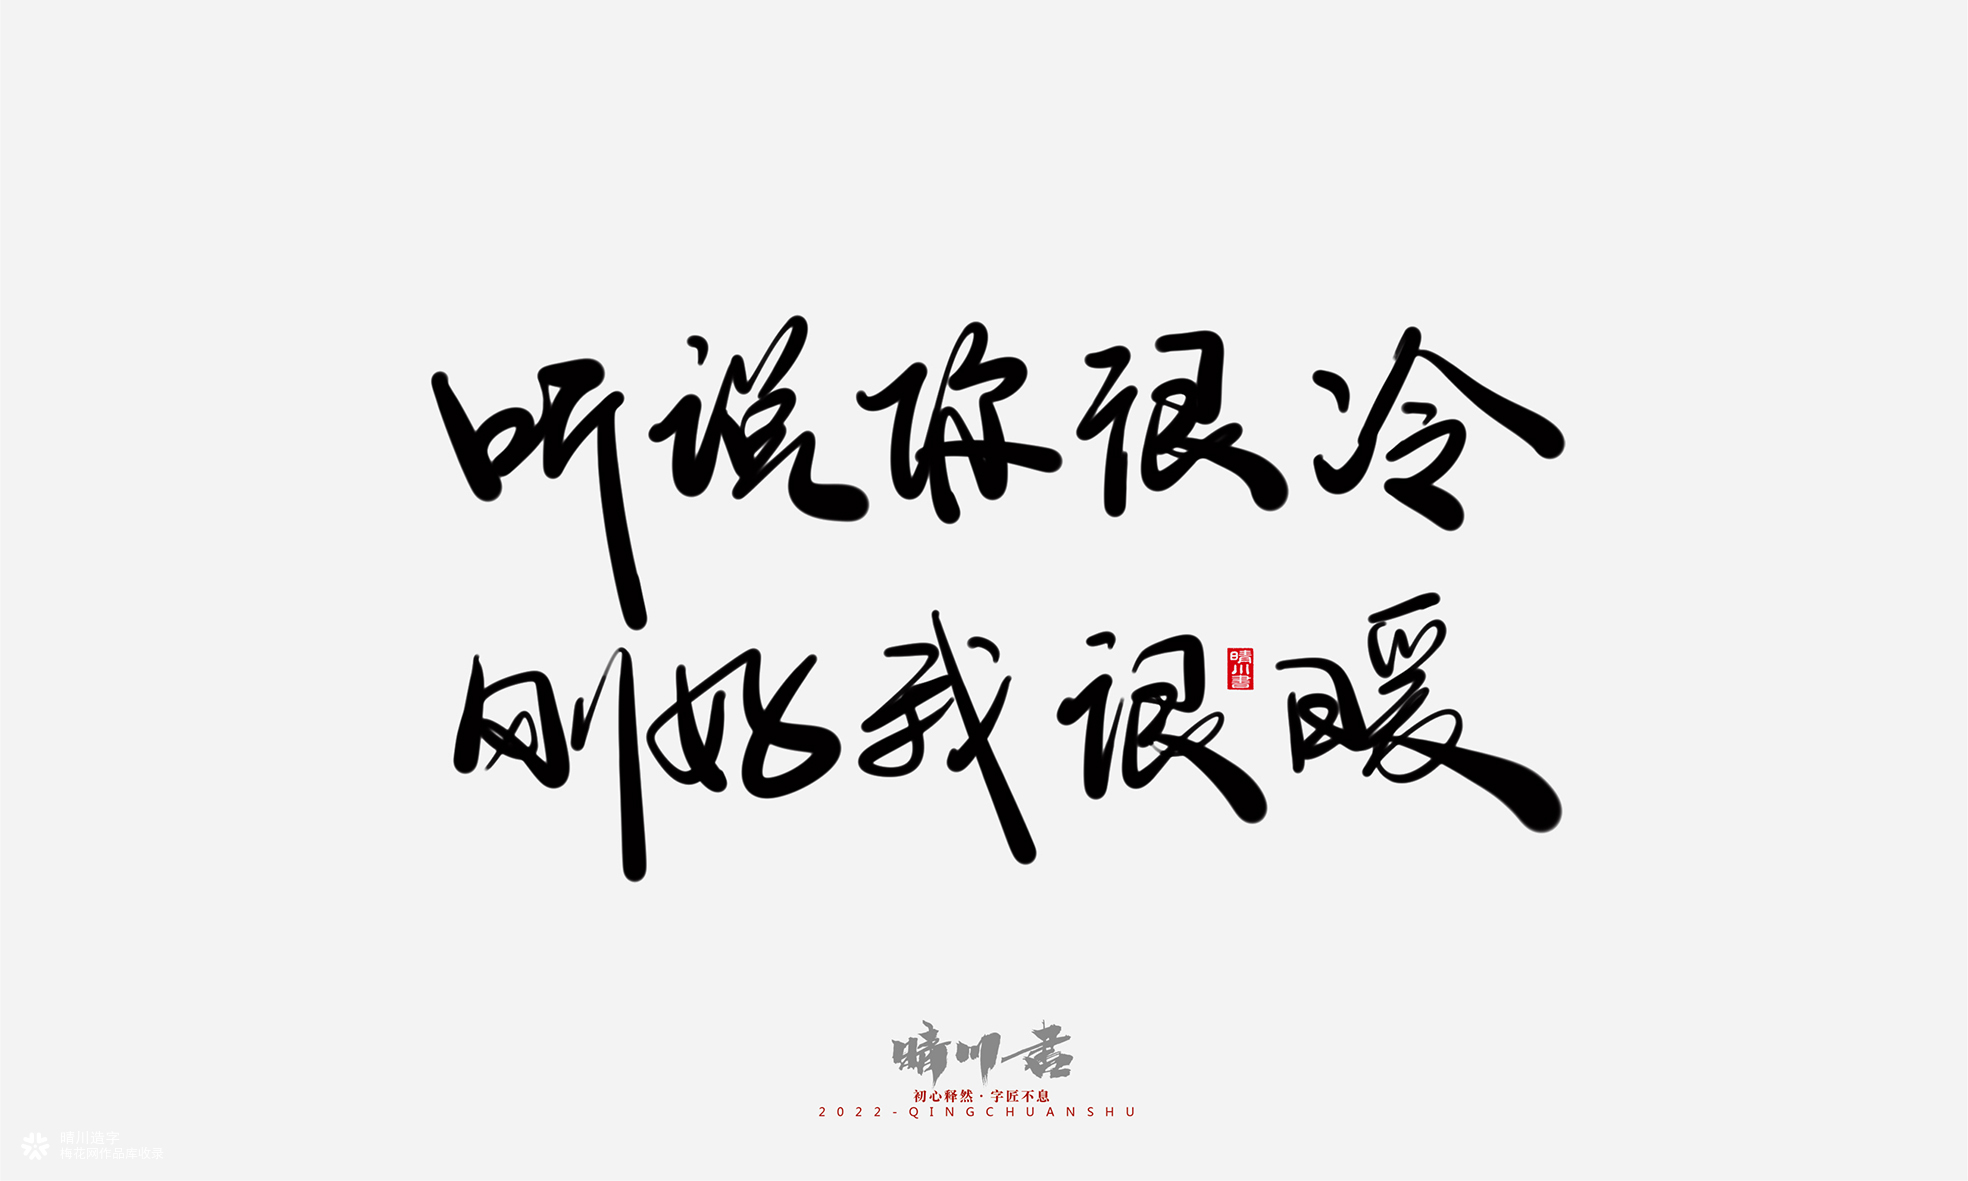 听说你很冷
刚好我很暖
晴川書
晴川书
初心释然·字匠不息
2022-QINGCHUANSHU
晴川造字
梅花网作品库收录